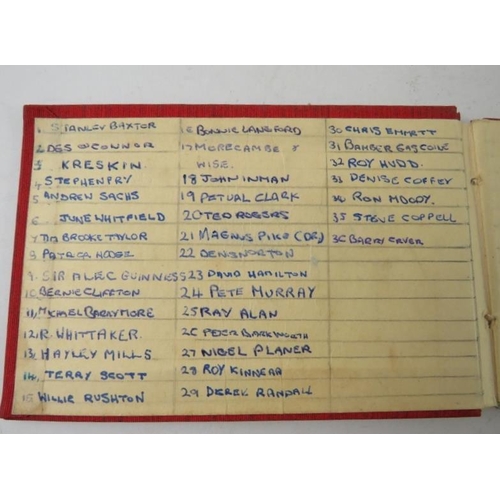 1. STANLEY BAXTER
2 DES O'CONNOR
3 KRESKIN
4 STEPHEN FRY
5 ANDREW SACHS
6 JUNE WHITFIELD
7 TIM BROOKE TAYLOR
8 PATRICA HODGE
9. SIR ALEC GUINNESS
10 BERNIE CLIFTON
11, MICHAEL BARRYMORE
12 R. WHITTAKER.
13 HAYLEY MILLS
14, TERRY SCOTT
15 WILLIE RUSHTON
16 BONNIE LANGFORD
17 MORECAMBE &
WISE.
18 JOHN INMAN
19 PETUAL CLARK
20 TED ROGERS
21 MAGNUS PIKE (DR)
22 DENIS NORTON
23 DAVID HAMILTON
24 PETE MURRAY
25 RAY ALAN
26 PETER BARKWORTH
27 NIGEL PLANER
28 ROY KINNEAR
29 DEREK RANDALL
30 CHRIS EMMETT
31 BAMBER GASCOINE
32 ROY HUDD.
33 DENISE COFFEY
34 RON MOODY.
35 STEVE COPPELL
36 BARRY CRYER